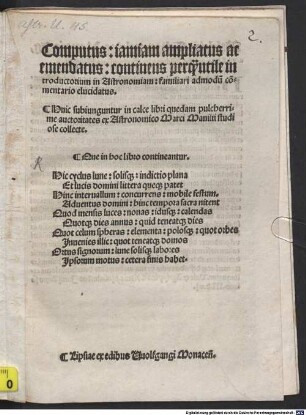 Astr. U. 115.
2.
Computus: iamiam ampliatus ac
emendatus: continens perq̃utile in
troductorium in Astronomiam: familiari admodũ cõ-
mentario elucidatus.
☾ Huic subiunguntur in calce libri quedam pulcherri
me auctoritates ex Astronomico Marci Manilii studi
ose collecte.
☾ Que in hoc libro contineantur.
Hic cyclus lune: solisq̃: indictio plana
Et lucis domini littera queq̃ patet
Hinc interuallum: concurrens: mobile festum.
Aduentus domini: hinc tempora sacra nitent
Quod mensis luces: nonas: idusq̃: calendas
Quotq̃ dies annus: quid teneatq̃ dies
Quot celum spheras: elementa: polosq̃: quot orbes
Inuenies illic: quot teneatq̃ domos
Ortus signorum: lune solisq̃ labores
Ipsorum motus: cetera finis habet.
☾ Lipsiae ex edibus Wuolfgangi Monaceñ.
0